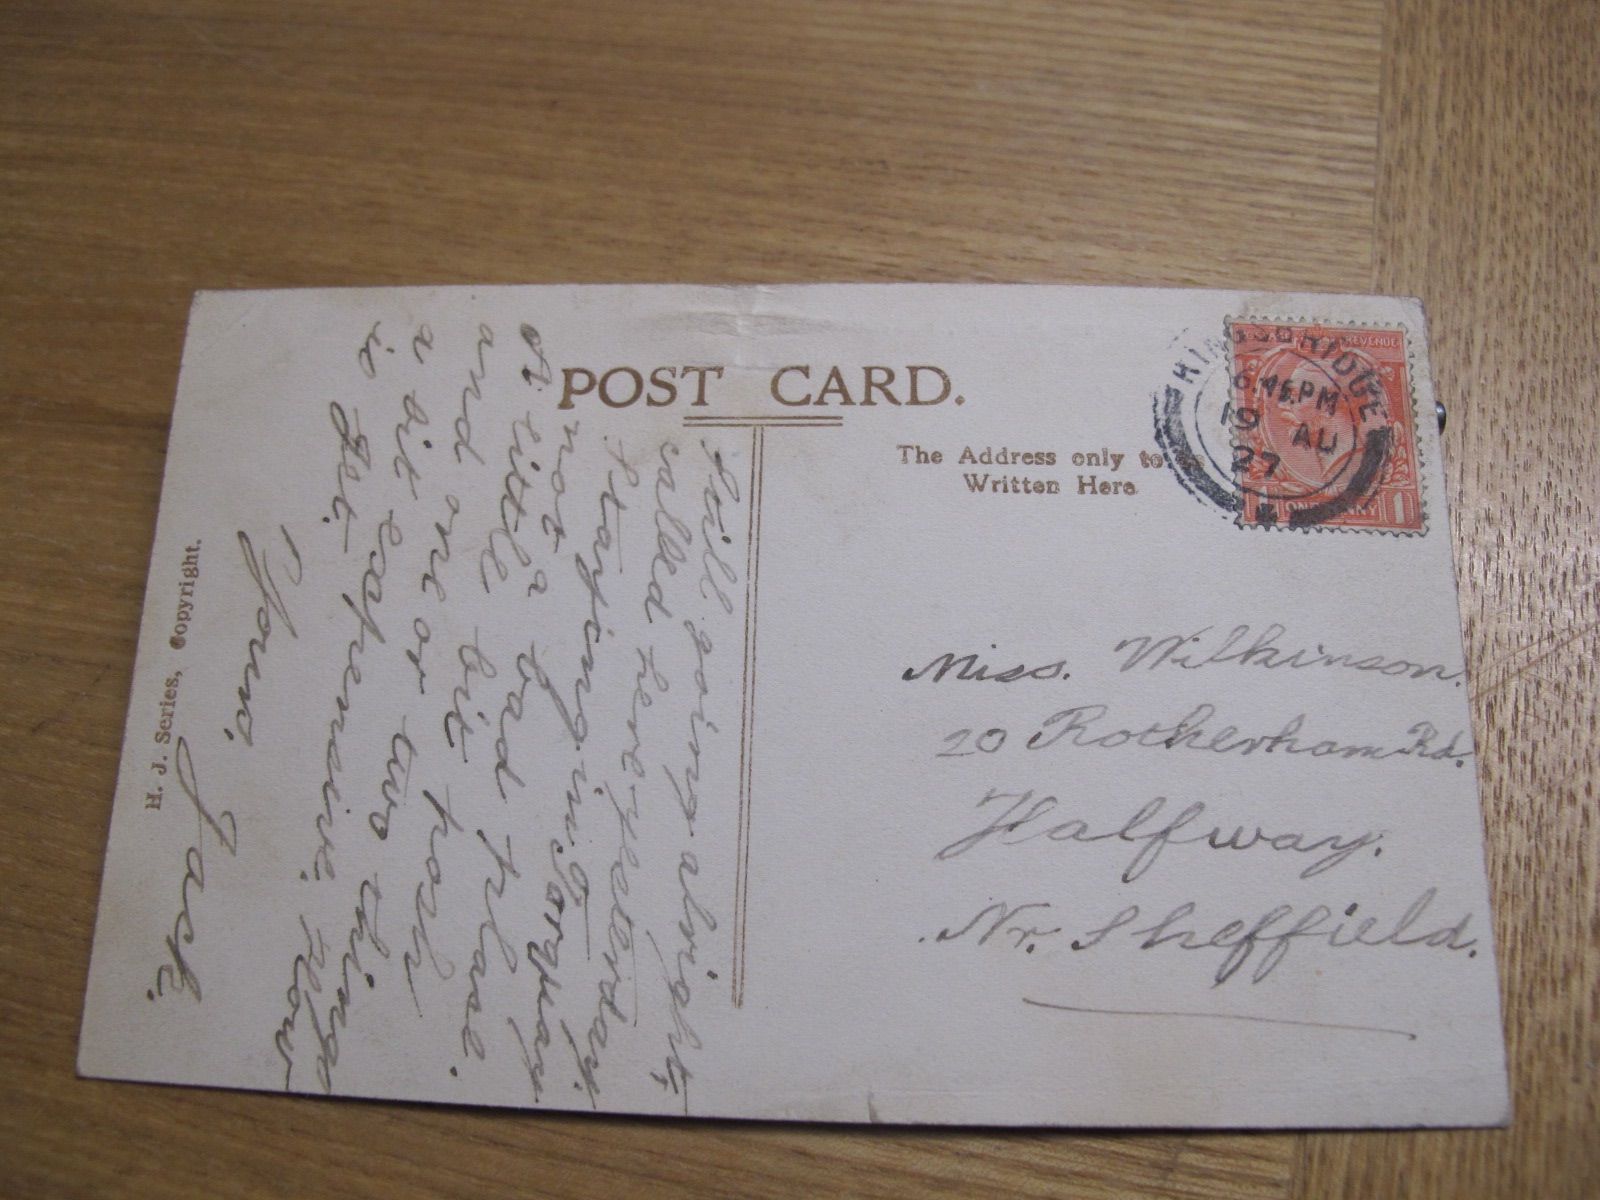 POST CARD.
The Address only to be
Written Here
KINGSBRIDGE
6.45PM
19 AU
27
REVENUE
ONE PENNY 1
Miss. Wilkinson.
20 Rotherham Rd.
Halfway.
Nr. Sheffield.
Still going alright,
called here yesterday.
Staying in Torquay
not a bad place.
A little bit posh
and one or two things
a bit expensive. Now
is
Yours.
Jack.
H. J. Series, Copyright.